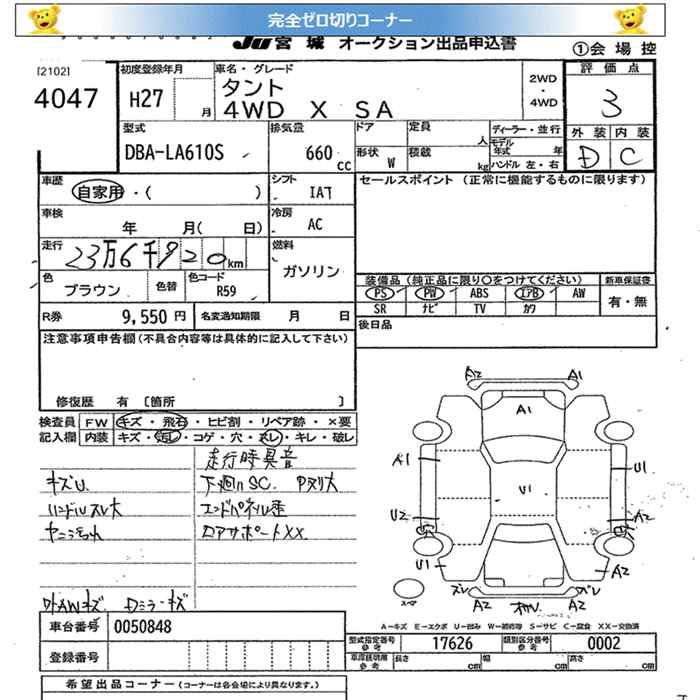 完全ゼロ切りコーナー
JU宮城 オークション出品申込書
①会場控
[2102]
4047
初度登録年月
H27 月
車名・グレード
タント
4WD X SA
2WD
・
4WD
評価点
3
外装 内装
D C
型式
DBA-LA610S
排気量
660 cc
ドア
定員 人
形状 W
積載 kg
ディーラー・並行
モデル年式 年
ハンドル 左・右
車歴
自家用・( )
シフト
IAT
セールスポイント (正常に機能するものに限ります)
車検
年 月( 日)
冷房
AC
走行
23万6千920km
燃料
ガソリン
色
ブラウン
色替
色コード
R59
装備品 (純正品に限り○をつけてください)
新車保証書
PS PW ABS エアB AW
SR ナビ TV カワ
有・無
R券
9,550 円
名変通知期限 月 日
後日品
注意事項申告欄 (不具合内容等は具体的に記入して下さい)
修復歴 有 〔箇所 〕
検査員記入欄
FW キズ・飛石・ヒビ割・リペア跡・×要
内装 キズ・汚レ・コゲ・穴・スレ・キレ・破レ
走行時異音
キズU.
下廻りSC.
ハンドルスレ大
エンドパネル歪
コアサポートXX.
外AWキズ. Dミラーキズ
A2 A1
A1
A1
U1
U1
U2
A2
U1
A2
ズレ ズレ
A2 A2
スペア
A-キズ E-エクボ U-凹み W-補修跡 S-サビ C-腐食 XX-交換済
車台番号
0050848
型式指定番号 参考
17626
類別区分番号 参考
0002
登録番号
車庫証明用 参考
長さ cm
幅 cm
高さ cm
希望出品コーナー (コーナーは各会場により異なります。)